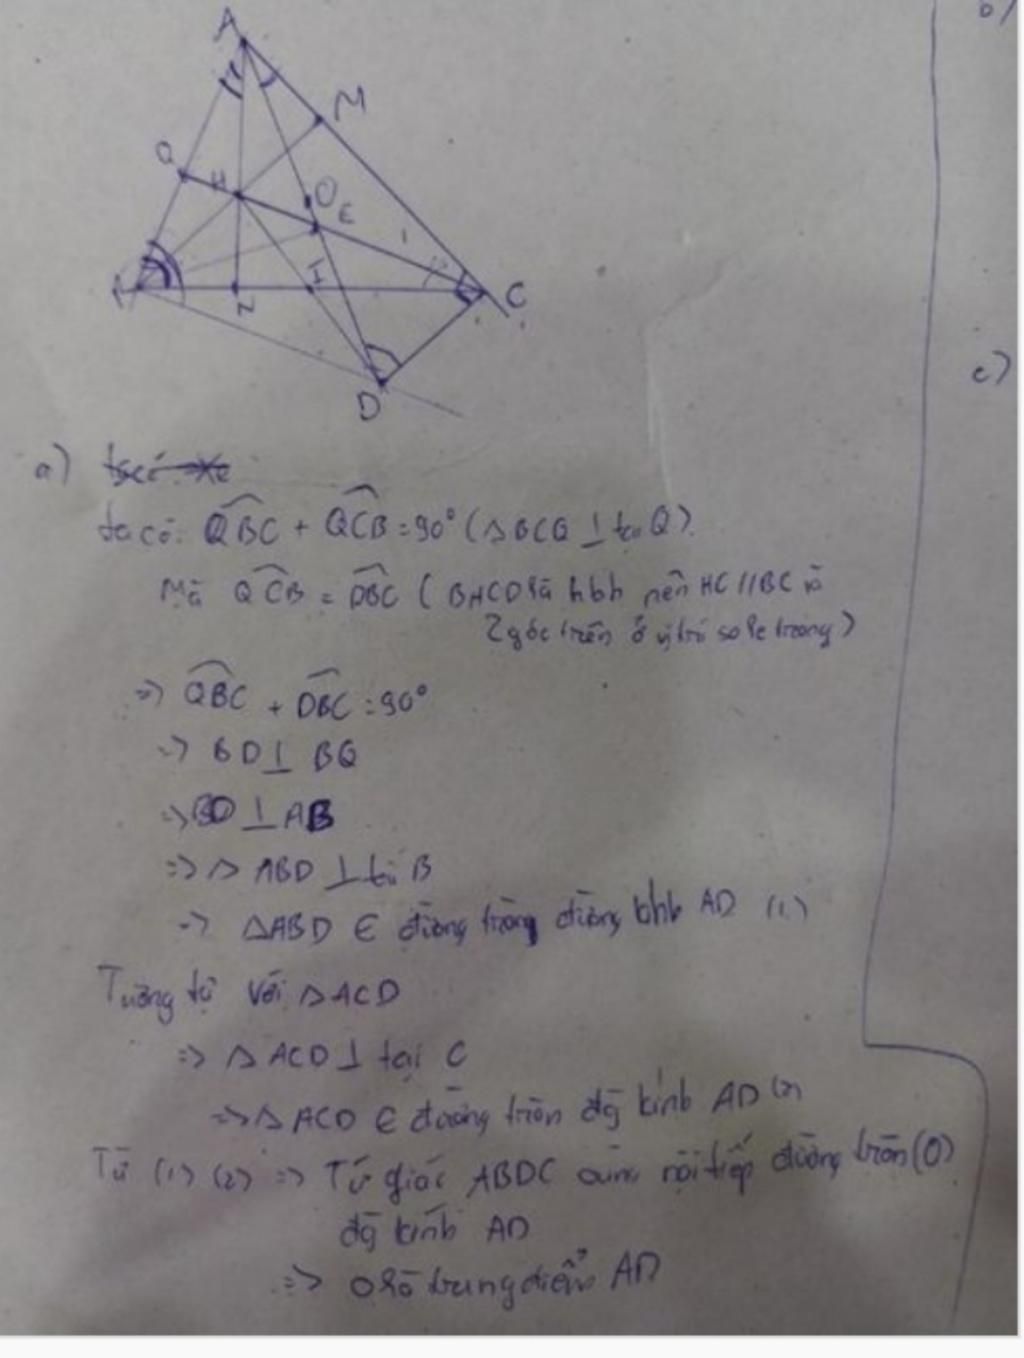 b)
A
M
Q
H
O
E
I
N
C
D
c)
a)
ta có: QBC + QCB = 90° (△BCQ ⊥ tại Q).
Mà QCB = DBC (BHCD là hbh nên HC // BC và
2 góc trên ở vị trí so le trong)
=> QBC + DBC = 90°
=> BD ⊥ BQ
=> BD ⊥ AB
=> △ ABD ⊥ tại B
=> △ABD ∈ đường tròng đường kính AD (1)
Tương tự với △ACD
=> △ ACD ⊥ tại C
=> △ ACD ∈ đường tròn đg kính AD (2)
Từ (1) (2) => Tứ giác ABDC cùng nội tiếp đường tròn (O)
đg kính AD
=> O là trung điểm AD